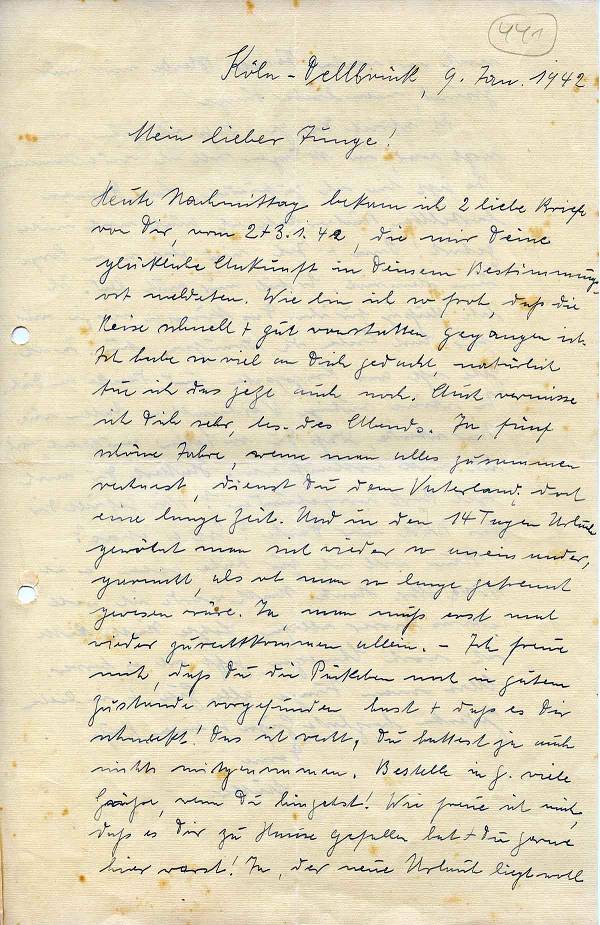 441
Köln-Dellbrück, 9. Jan. 1942
Mein lieber Junge!
Heute Nachmittag bekam ich 2 liebe Briefe
von Dir, vom 2+3.1.42, die mir Deine
glückliche Ankunft in Deinem Bestimmungs-
ort meldeten. Wie bin ich so froh, daß die
Reise schnell + gut vonstatten gegangen ist.
Ich habe so viel an Dich gedacht, natürlich
tue ich das jetzt auch noch. Auch vermisse
ich Dich sehr, bes. des Abends. Ja, fünf
schöne Jahre, wenn man alles zusammen
rechnet, dienst Du dem Vaterland, doch
eine lange Zeit. Und in den 14 Tagen Urlaub
gewöhnt man sich wieder so aneinander,
gar nicht, als ob man so lange getrennt
gewesen wäre. Ja, man muß erst mal
wieder zurechtkommen allein. – Ich freue
mich, daß Du die Päckchen noch in gutem
Zustande vorgefunden hast + daß es Dir
schmeckt! Das ist recht, Du hattest ja auch
nichts mitgenommen. Bestelle in J. viele
Grüße, wenn Du hingehst! Wie freue ich mich,
daß es Dir zu Hause gefallen hat + Du gerne
hier warst! Ja, der neue Urlaub liegt wohl